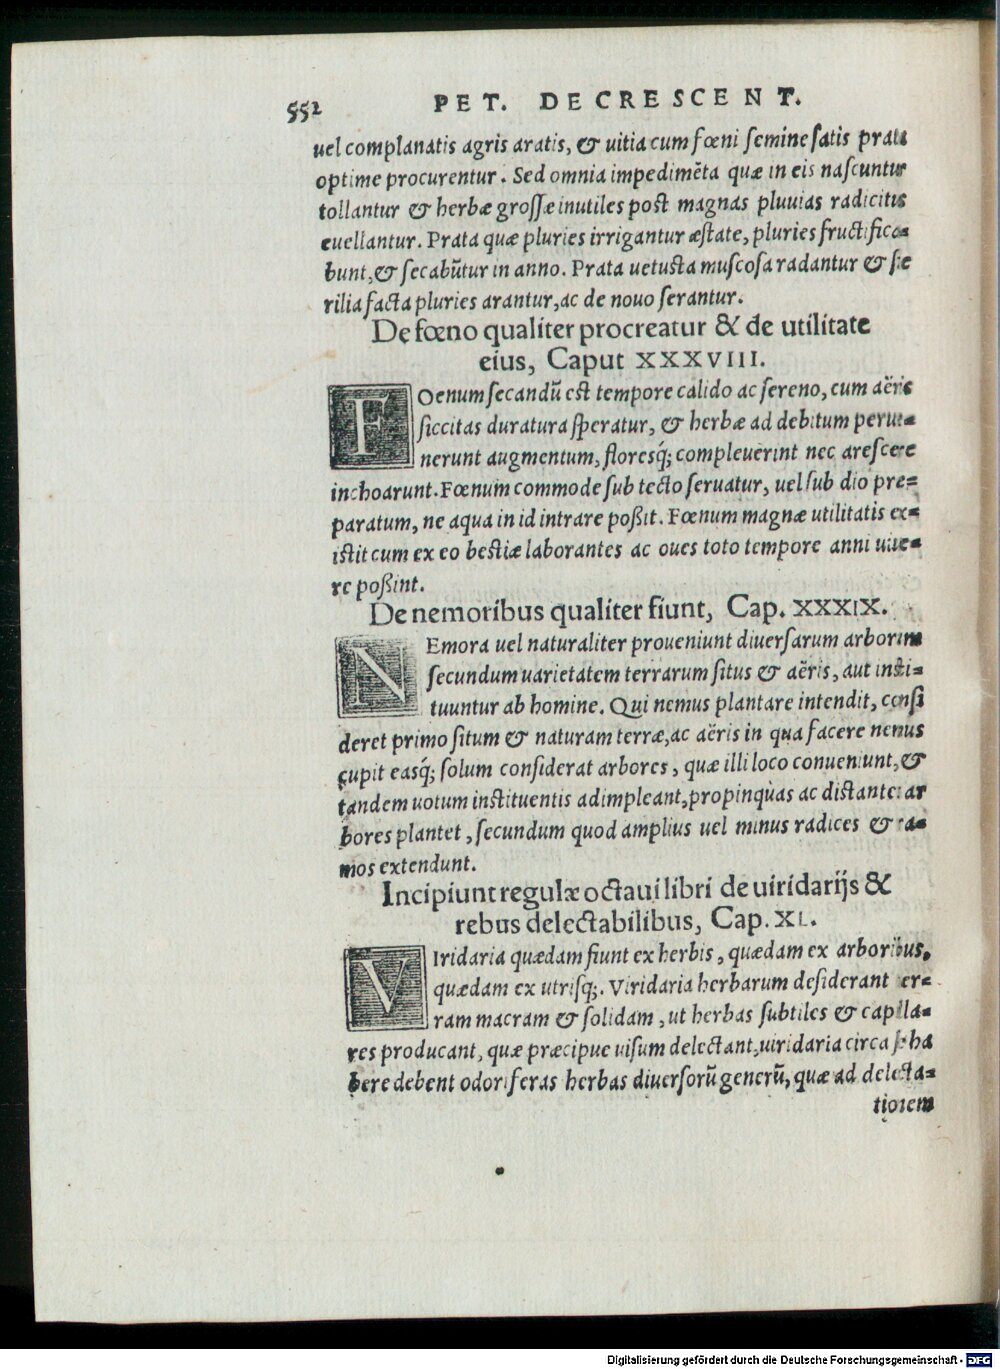 552 PET. DE CRESCENT.
uel complanatis agris aratis, & uitia cum fœni semine satis prata
optime procurentur. Sed omnia impedimēta quæ in eis nascuntur
tollantur & herbæ grossæ inutiles post magnas pluuias radicitus
euellantur. Prata quæ pluries irrigantur æstate, pluries fructifica=
bunt, & secabūtur in anno. Prata uetusta muscosa radantur & ste
rilia facta pluries arantur, ac de nouo serantur.
De fœno qualiter procreatur & de utilitate
eius, Caput XXXVIII.
FOenum secandū est tempore calido ac sereno, cum aëris
siccitas duratura speratur, & herbæ ad debitum perue=
nerunt augmentum, floresq́; compleuerint nec arescere
inchoarunt. Fœnum commode sub tecto seruatur, uel sub dio pre=
paratum, ne aqua in id intrare poßit. Fœnum magnæ utilitatis ex=
istit cum ex eo bestiæ laborantes ac oues toto tempore anni uiue=
re poßint.
De nemoribus qualiter fiunt, Cap. XXXIX.
NEmora uel naturaliter proueniunt diuersarum arborum
secundum uarietatem terrarum situs & aëris, aut insti=
tuuntur ab homine. Qui nemus plantare intendit, consi
deret primo situm & naturam terræ, ac aëris in qua facere nemus
cupit easq́; solum considerat arbores, quæ illi loco conueniunt, &
tandem uotum instituentis adimpleant, propinquas ac distanter ar
bores plantet, secundum quod amplius uel minus radices & ra=
mos extendunt.
Incipiunt regulæ octaui libri de uiridarijs &
rebus delectabilibus, Cap. XL.
VIridaria quædam fiunt ex herbis, quædam ex arboribus,
quædam ex utrisq;. Viridaria herbarum desiderant ter=
ram macram & solidam, ut herbas subtiles & capilla=
res producant, quæ præcipue uisum delectant, uiridaria circa se ha
bere debent odoriferas herbas diuersorū generū, quæ ad delecta=
tionem
Digitalisierung gefördert durch die Deutsche Forschungsgemeinschaft - DFG